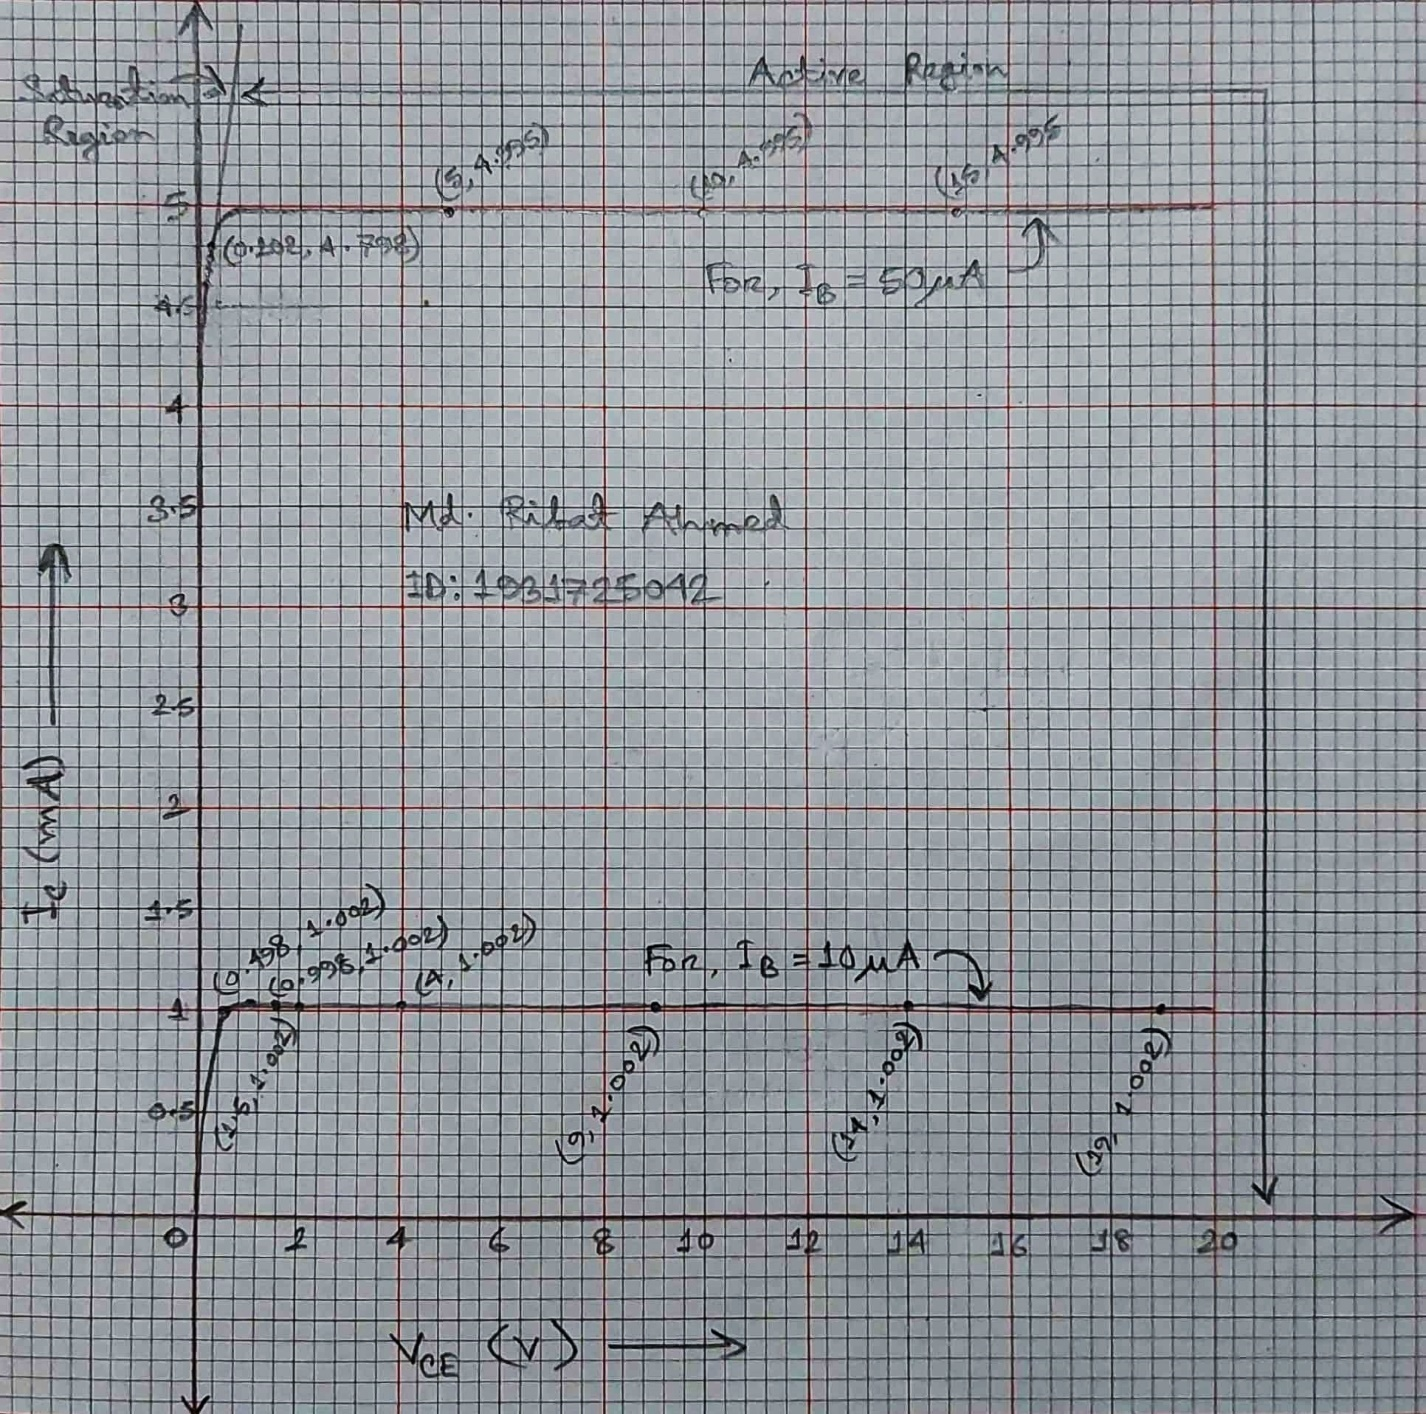 Saturation
Region
Active Region
(5, 4.995)
(10, 4.995)
(15, 4.995
5
(0.202, 4.798)
For, IB = 50μA
4.5
4
3.5
Md. Rifat Ahmed
ID: 1931725042
3
2.5
Ic (mA)
2
1.5
(0.498, 1.002)
(0.998, 1.002)
(4, 1.002)
For, IB = 10μA
1
(1.5, 1.002)
(9, 1.002)
(14, 1.002)
(19, 1.002)
0.5
0 2 4 6 8 10 12 14 16 18 20
VCE (V)